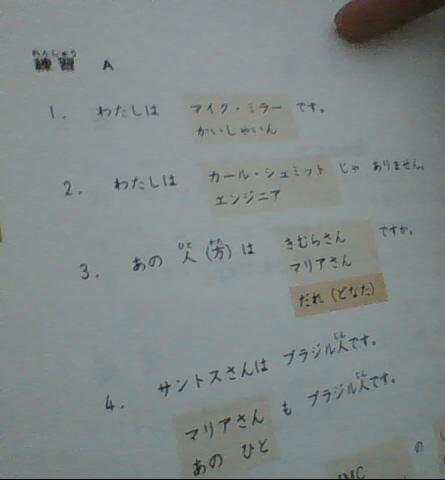 れんしゅう
練習 A
1. わたしは マイク・ミラー です。
かいしゃいん
2. わたしは カール・シュミット じゃ ありません。
エンジニア
ひと かた
3. あの 人(方)は きむらさん ですか。
マリアさん
だれ(どなた)
じん
4. サントスさんは ブラジル人です。
じん
マリアさん も ブラジル人です。
あの ひと
IMC の